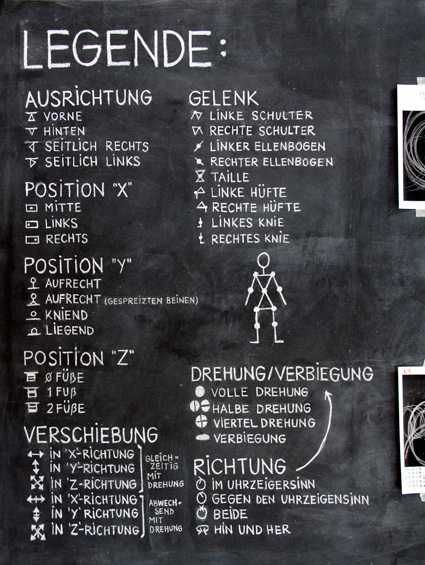 LEGENDE:
AUSRICHTUNG
VORNE
HINTEN
SEITLICH RECHTS
SEITLICH LINKS
POSITION "X"
MITTE
LINKS
RECHTS
POSITION "Y"
AUFRECHT
AUFRECHT (GESPREIZTEN BEINEN)
KNIEND
LIEGEND
POSITION "Z"
Ø FÜẞE
1 FUẞ
2 FÜẞE
VERSCHIEBUNG
IN 'X'-RICHTUNG
IN 'Y'-RICHTUNG
IN 'Z'-RICHTUNG
GLEICH-
ZEITIG
MIT
DREHUNG
IN 'X'-RICHTUNG
IN 'Y' RICHTUNG
IN 'Z'-RICHTUNG
ABWECH-
SEND
MIT
DREHUNG
GELENK
LINKE SCHULTER
RECHTE SCHULTER
LINKER ELLENBOGEN
RECHTER ELLENBOGEN
TAILLE
LINKE HÜFTE
RECHTE HÜFTE
LINKES KNIE
RECHTES KNIE
DREHUNG/VERBIEGUNG
VOLLE DREHUNG
HALBE DREHUNG
VIERTEL DREHUNG
VERBIEGUNG
RICHTUNG
IM UHRZEIGERSINN
GEGEN DEN UHRZEIGENSINN
BEIDE
HIN UND HER